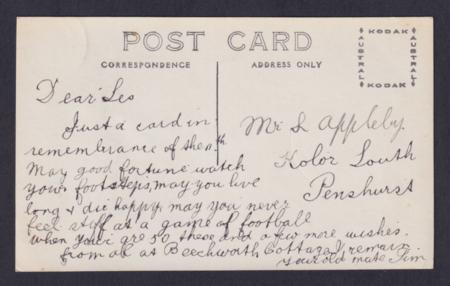 POST CARD
CORRESPONDENCE
ADDRESS ONLY
KODAK
AUSTRAL
AUSTRAL
KODAK
Dear Les
Just a card in
remembrance of the nth
May good fortune watch
your footsteps, may you live
long & die happy, may you never
feel stiff at a game of football
when you are 50 these and a few more wishes.
from all at Beechworth Cottage I remain
Your old mate Jim
Mr L Appleby.
Kolor South
Penshurst